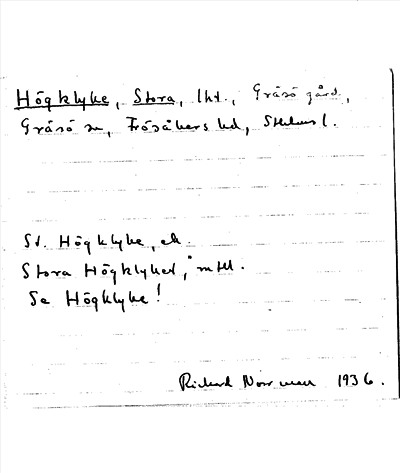 Högklyke, Stora, lht., Gräsö gård,
Gräsö sn, Frösåkers hd, Sthlms l.
St. Högklyke, ek.
Stora Högklyket, mtl.
Se Högklyke!
Richard Norrman 1936.